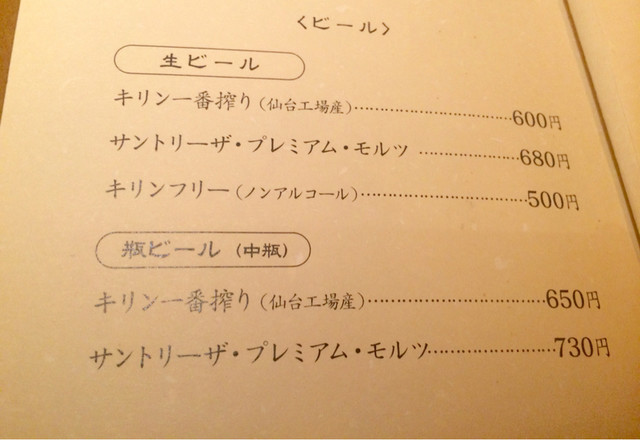 〈ビール〉
生ビール
キリン一番搾り(仙台工場産)……………………………600円
サントリーザ・プレミアム・モルツ ………………680円
キリンフリー(ノンアルコール)……………………………500円
瓶ビール(中瓶)
キリン一番搾り(仙台工場産)……………………………650円
サントリーザ・プレミアム・モルツ……………………730円